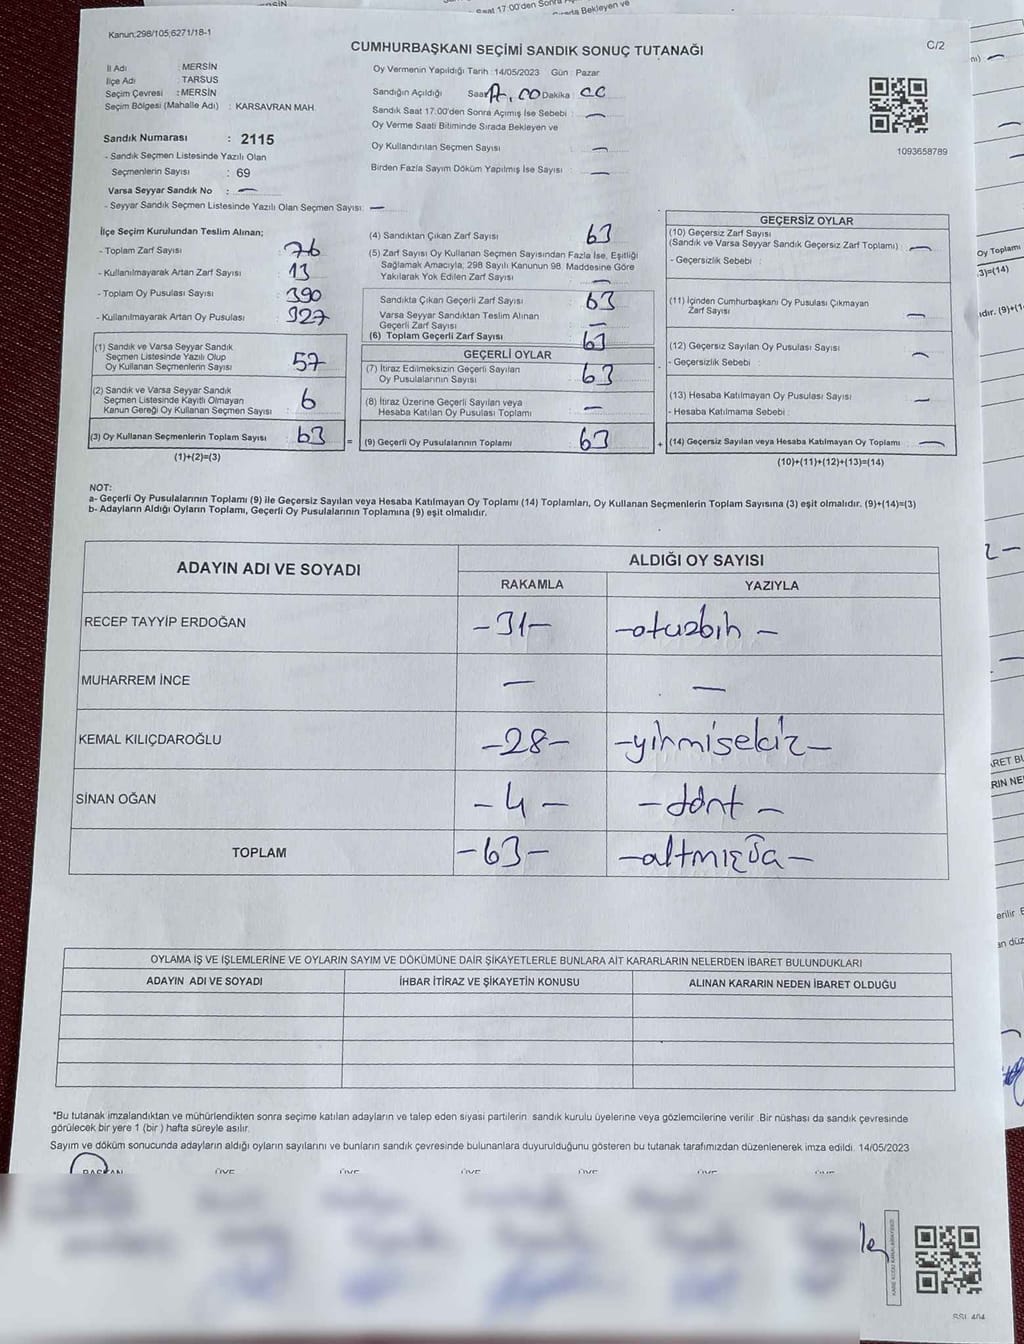 Kanun;298/105,6271/18-1
C/2
CUMHURBAŞKANI SEÇİMİ SANDIK SONUÇ TUTANAĞI
İl Adı : MERSİN
İlçe Adı : TARSUS
Seçim Çevresi : MERSİN
Seçim Bölgesi (Mahalle Adı) : KARSAVRAN MAH.
Sandık Numarası : 2115
- Sandık Seçmen Listesinde Yazılı Olan
Seçmenlerin Sayısı : 69
Varsa Seyyar Sandık No : —
- Seyyar Sandık Seçmen Listesinde Yazılı Olan Seçmen Sayısı: —
Oy Vermenin Yapıldığı Tarih : 14/05/2023 Gün : Pazar
Sandığın Açıldığı Saat Dakika
Sandık Saat 17:00'den Sonra Açımış İse Sebebi : —
Oy Verme Saati Bitiminde Sırada Bekleyen ve
Oy Kullandırılan Seçmen Sayısı : —
Birden Fazla Sayım Döküm Yapılmış İse Sayısı : —
1093658789
İlçe Seçim Kurulundan Teslim Alınan;
- Toplam Zarf Sayısı : 76
- Kullanılmayarak Artan Zarf Sayısı : 13
- Toplam Oy Pusulası Sayısı : 390
- Kullanılmayarak Artan Oy Pusulası : 327
(1) Sandık ve Varsa Seyyar Sandık
Seçmen Listesinde Yazılı Olup
Oy Kullanan Seçmenlerin Sayısı : 57
(2) Sandık ve Varsa Seyyar Sandık
Seçmen Listesinde Kayıtlı Olmayan
Kanun Gereği Oy Kullanan Seçmen Sayısı : 6
(3) Oy Kullanan Seçmenlerin Toplam Sayısı : 63
(1)+(2)=(3)
(4) Sandıktan Çıkan Zarf Sayısı : 63
(5) Zarf Sayısı Oy Kullanan Seçmen Sayısından Fazla İse, Eşitliği
Sağlamak Amacıyla; 298 Sayılı Kanunun 98. Maddesine Göre
Yakılarak Yok Edilen Zarf Sayısı : —
Sandıkta Çıkan Geçerli Zarf Sayısı : 63
Varsa Seyyar Sandıktan Teslim Alınan
Geçerli Zarf Sayısı : —
(6) Toplam Geçerli Zarf Sayısı : 63
GEÇERLİ OYLAR
(7) İtiraz Edilmeksizin Geçerli Sayılan
Oy Pusulalarının Sayısı : 63
(8) İtiraz Üzerine Geçerli Sayılan veya
Hesaba Katılan Oy Pusulası Toplamı : —
= (9) Geçerli Oy Pusulalarının Toplamı : 63
GEÇERSİZ OYLAR
(10) Geçersiz Zarf Sayısı
(Sandık ve Varsa Seyyar Sandık Geçersiz Zarf Toplamı) : —
- Geçersizlik Sebebi :
(11) İçinden Cumhurbaşkanı Oy Pusulası Çıkmayan
Zarf Sayısı : —
(12) Geçersiz Sayılan Oy Pusulası Sayısı : —
- Geçersizlik Sebebi :
(13) Hesaba Katılmayan Oy Pusulası Sayısı : —
- Hesaba Katılmama Sebebi :
+ (14) Geçersiz Sayılan veya Hesaba Katılmayan Oy Toplamı : —
(10)+(11)+(12)+(13)=(14)
NOT:
a- Geçerli Oy Pusulalarının Toplamı (9) ile Geçersiz Sayılan veya Hesaba Katılmayan Oy Toplamı (14) Toplamları, Oy Kullanan Seçmenlerin Toplam Sayısına (3) eşit olmalıdır. (9)+(14)=(3)
b- Adayların Aldığı Oyların Toplamı, Geçerli Oy Pusulalarının Toplamına (9) eşit olmalıdır.
ADAYIN ADI VE SOYADI ALDIĞI OY SAYISI
RAKAMLA YAZIYLA
RECEP TAYYİP ERDOĞAN -31- -otuzbir-
MUHARREM İNCE — —
KEMAL KILIÇDAROĞLU -28- -yirmisekiz-
SİNAN OĞAN -4- -dört-
TOPLAM -63- -altmışüç-
OYLAMA İŞ VE İŞLEMLERİNE VE OYLARIN SAYIM VE DÖKÜMÜNE DAİR ŞİKAYETLERLE BUNLARA AİT KARARLARIN NELERDEN İBARET BULUNDUKLARI
ADAYIN ADI VE SOYADI İHBAR İTİRAZ VE ŞİKAYETİN KONUSU ALINAN KARARIN NEDEN İBARET OLDUĞU
*Bu tutanak imzalandıktan ve mühürlendikten sonra seçime katılan adayların ve talep eden siyasi partilerin sandık kurulu üyelerine veya gözlemcilerine verilir. Bir nüshası da sandık çevresinde
görülecek bir yere 1 (bir) hafta süreyle asılır.
Sayım ve döküm sonucunda adayların aldığı oyların sayılarını ve bunların sandık çevresinde bulunanlara duyurulduğunu gösteren bu tutanak tarafımızdan düzenlenerek imza edildi. 14/05/2023
BAŞKAN ÜYE ÜYE ÜYE ÜYE ÜYE ÜYE